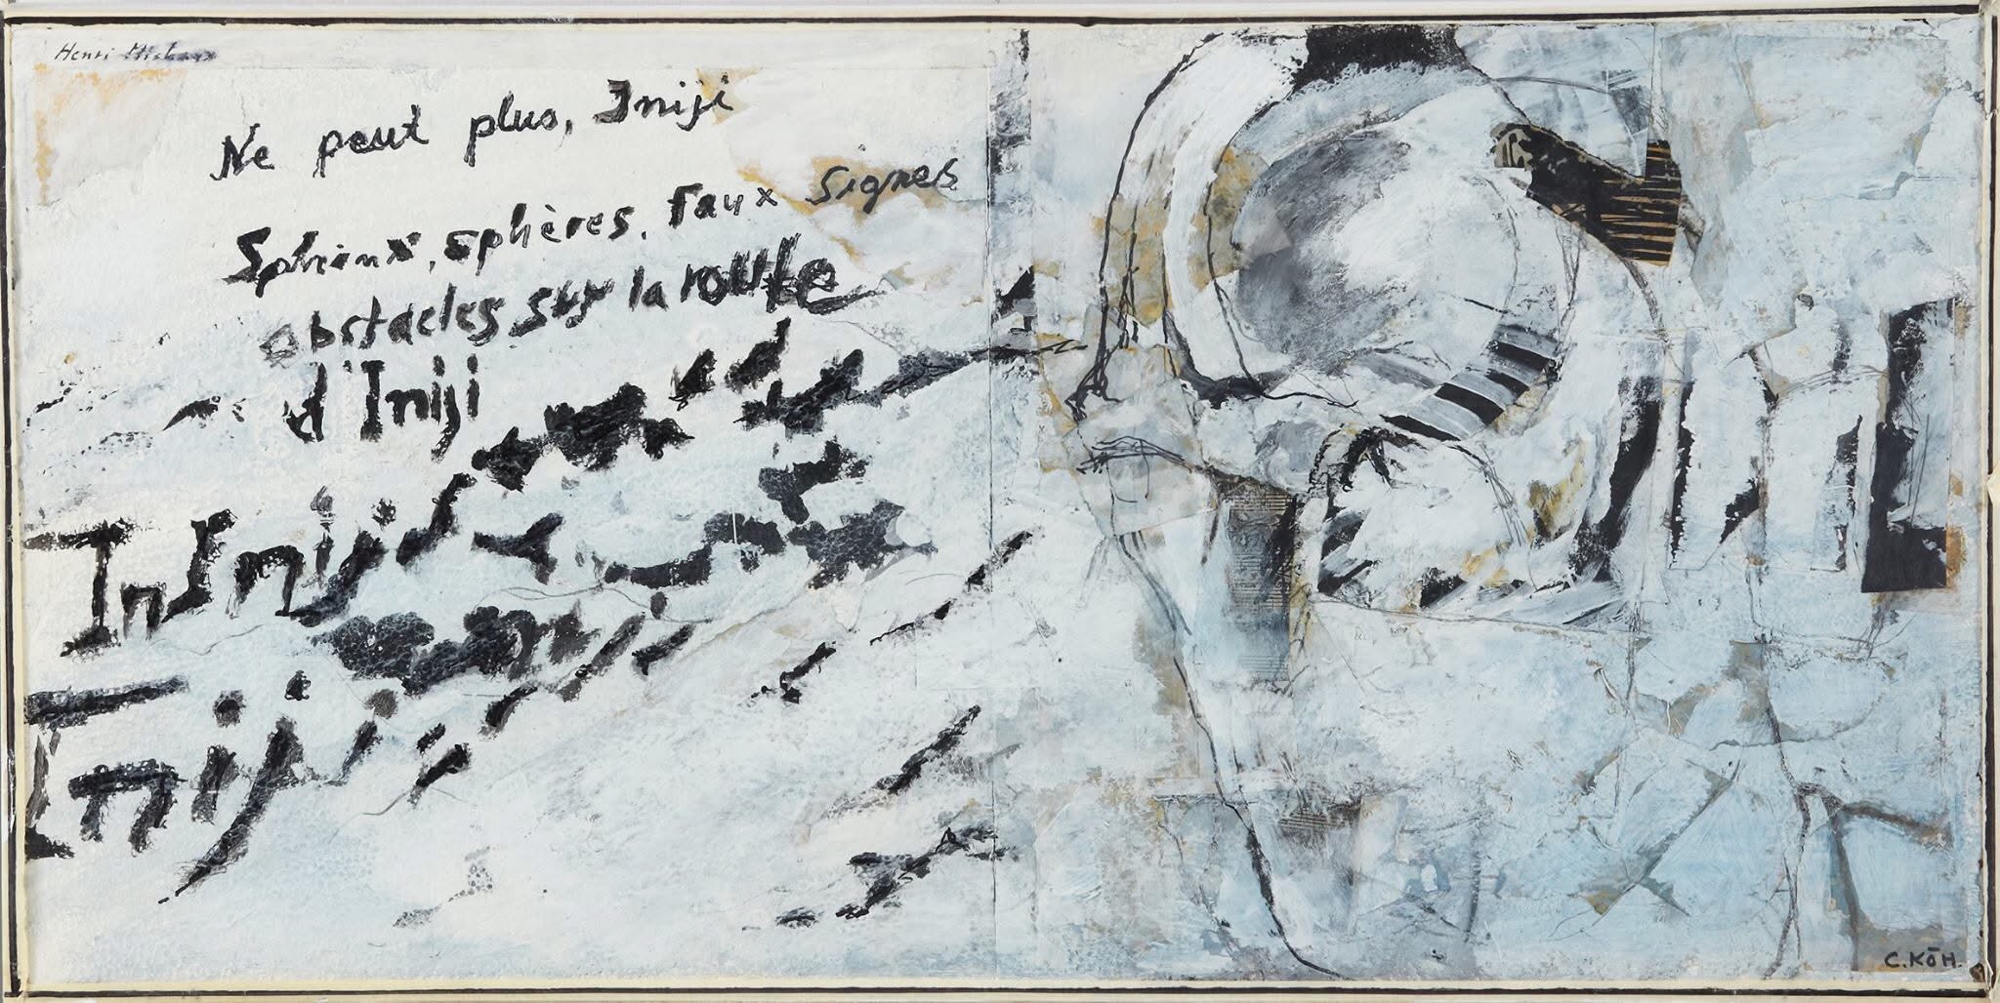 Henri Michaux
Ne peut plus, Iniji
Sphinx, sphères, faux signes
obstacles sur la route
d'Iniji
In Iniji
Iniji
C. KŌH.